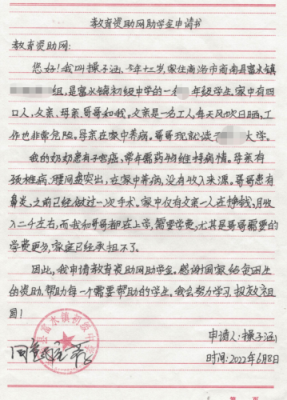 教育资助网助学金申请书
教育资助网:
您好!我叫操子涵,今年十二岁,家住商洛市商南县富水镇
组,是富水镇初级中学的一名 年级学生,家中有四
口人,父亲、母亲、哥哥和我。父亲是一名工人,每天风吹日晒,工
作也非常危险。母亲在家中养病。哥哥现就读于 大学。
我的奶奶患有子宫癌,常年需药物维持病情。母亲有
颈椎病、腰间盘突出,在家中养病,没有收入来源。哥哥患有
鼻炎,之前已经做过一次手术。家中仅有父亲一人在挣钱,月收
入二千左右,而我和哥哥都在上学,需要学费,尤其是哥哥需要的
学费更多,家庭已经承担不了。
因此,我申请教育资助网助学金。感谢国家给贫困生
的资助,帮助每一个需要帮助的学生,我会努力学习,报效祖
国!
申请人:操子涵
时间:2022年6月8日
富水镇初级中学